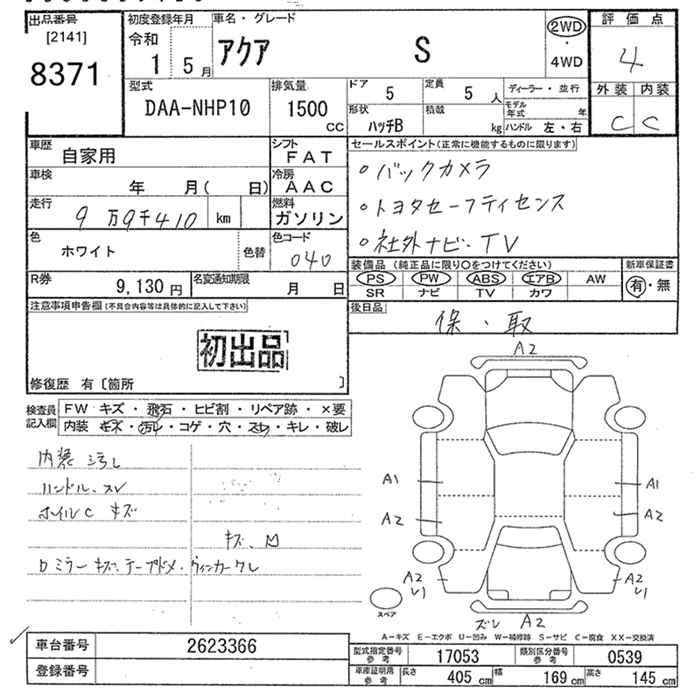 出品番号 初度登録年月 車名・グレード 評価点
[2141]
8371
令和
1 5月
アクア S
2WD
・
4WD
4
型式 排気量 ドア 定員 ディーラー・並行 外装 内装
DAA-NHP10 1500 cc 5 5人
形状 積載 kg モデル年式 年
ハッチB ハンドル 左・右
C C
車歴 自家用 シフト FAT
セールスポイント(正常に機能するものに限ります)
車検 年 月( 日) 冷房 AAC
○バックカメラ
走行 9万9千410 km 燃料 ガソリン
○トヨタセーフティセンス
色 ホワイト 色替 色コード 040
○社外ナビ・TV
R券 9,130円 名変通知期限 月 日
装備品(純正品に限り○をつけてください) 新車保証書
PS PW ABS エアB AW
SR ナビ TV カワ
有・無
注意事項申告欄(不具合内容等は具体的に記入して下さい)
後日品 保・取
初出品
修復歴 有〔箇所 〕
検査員記入欄
FW キズ・飛石・ヒビ割・リペア跡・×要
内装 キズ・汚レ・コゲ・穴・スレ・キレ・破レ
内装 汚レ
ハンドル、スレ
ホイルC キズ
キズ、凹
ロミラーキズ、テープドメ・ウィンカークレ
A2
A1 A1
A2 A2
A2 A2
U1 U1
スペア
ズレ A2
A-キズ E-エクボ U-凹み W-補修跡 S-サビ C-腐食 XX-交換済
車台番号 2623366
登録番号
型式指定番号 参考 17053 類別区分番号 参考 0539
車庫証明用 参考 長さ 405cm 幅 169cm 高さ 145cm